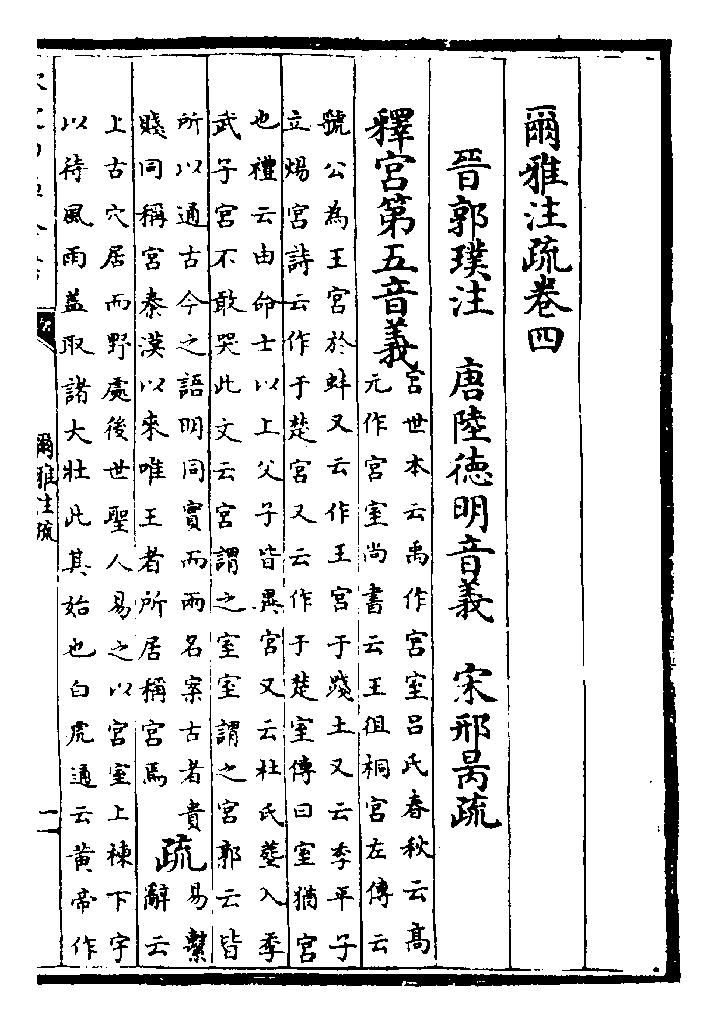 爾雅注疏卷四
晉郭璞注　唐陸德明音義　宋邢昺疏
釋宫第五音義
宫世本云禹作宫室吕氏春秋云高
元作宫室尚書云王徂桐宫左傳云
虢公為王宫於蚌又云作王宫于踐土又云季平子
立煬宫詩云作于楚宫又云作于楚室傳曰室猶宫
也禮云由命士以上父子皆異宫又云杜氏塟入季
武子宫不敢哭此文云宫謂之室室謂之宫郭云皆
所以通古今之語明同實而兩名案古者貴
賤同稱宫秦漢以來唯王者所居稱宫焉
疏
易繫
辭云
上古穴居而野處後世聖人易之以宫室上棟下宇
以待風雨蓋取諸大壯此其始也白虎通云黄帝作
爾雅注疏
一